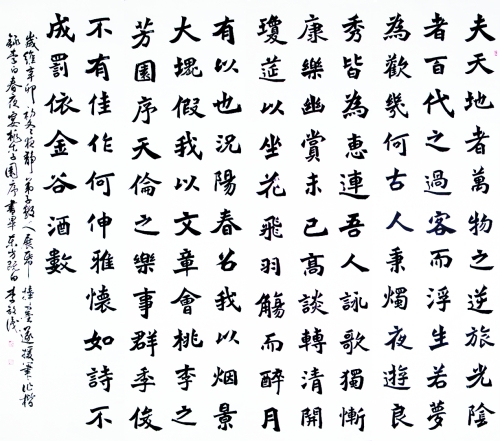 夫天地者萬物之逆旅光陰
者百代之過客而浮生若夢
為歡幾何古人秉燭夜遊良
秀皆為惠連吾人詠歌獨慚
康樂幽賞未已高談轉清開
瓊筵以坐花飛羽觴而醉月
有以也況陽春召我以烟景
大塊假我以文章會桃李之
芳園序天倫之樂事群季俊
不有佳作何伸雅懷如詩不
成罰依金谷酒數
歲維辛卯初冬夜靜弟子數人展紙遂援筆作楷
錄李白春夜宴桃李園序書畢東方既白李